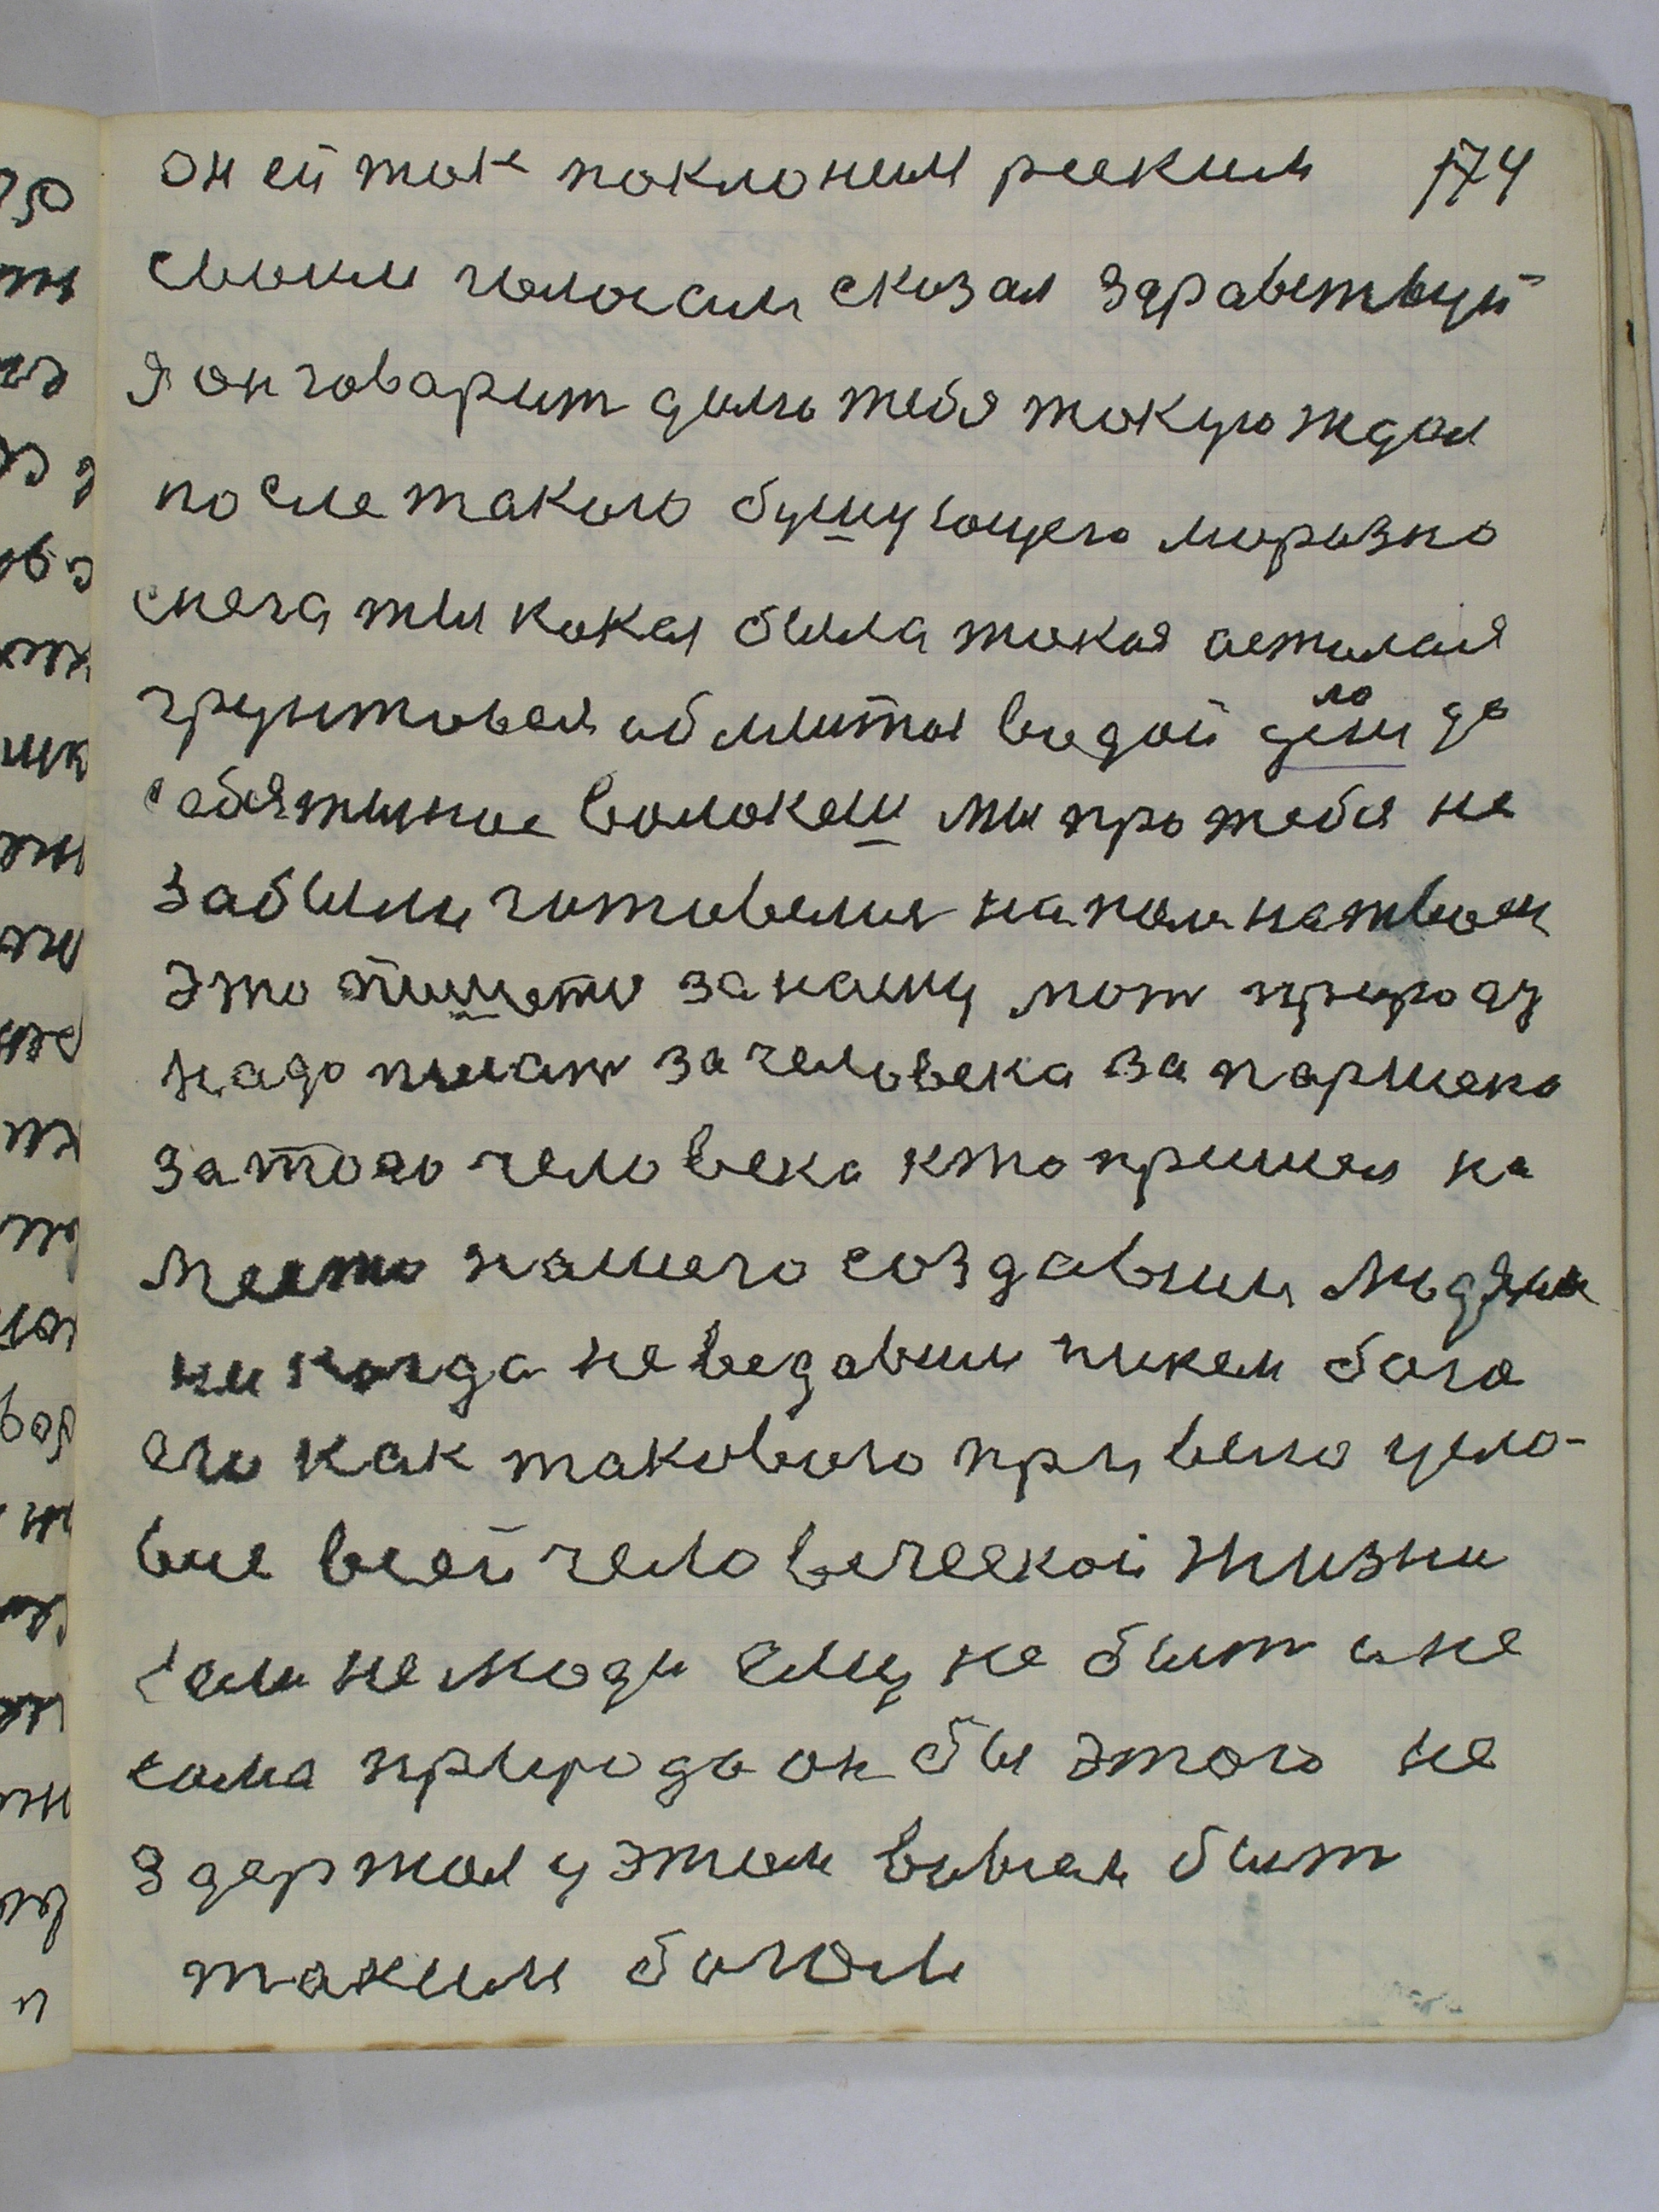 он ей так поклонился реским 174
своим голосам сказал здравствуй
я он говарит даже тебя такую ждал
после такого бушующего морозно
снега ты какая была такая асталая
грунтовая облитая водой дело да
обятыное волокеш мы про тебя не
забыли готовелися на поле
это пишете за нашу мат природу
надо писат за человека за паршека
за того человека кто пришел на
место нашего создавшим людями
никогда неведавшим никем бога
его как таковога привело усло-
вие всей человеческой жизни
если не люди ему не быт и не
сама природа он бы этого не
здержал у этом век быт
таким богом